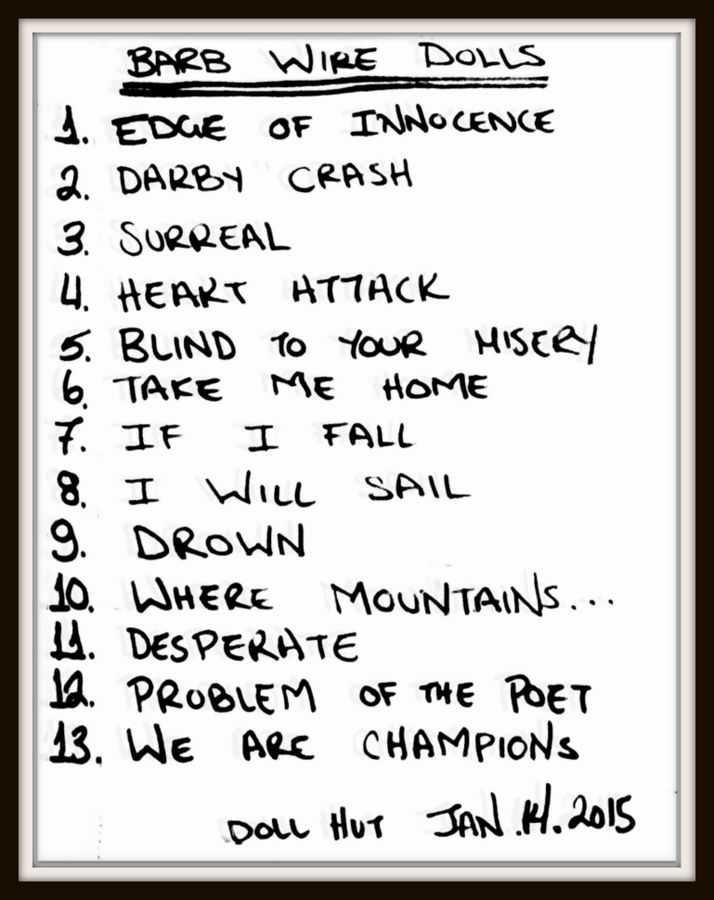 BARB WIRE DOLLS
1. EDGE OF INNOCENCE
2. DARBY CRASH
3. SURREAL
4. HEART ATTACK
5. BLIND TO YOUR MISERY
6. TAKE ME HOME
7. IF I FALL
8. I WILL SAIL
9. DROWN
10. WHERE MOUNTAINS...
11. DESPERATE
12. PROBLEM OF THE POET
13. WE ARE CHAMPIONS
DOLL HUT JAN.14.2015